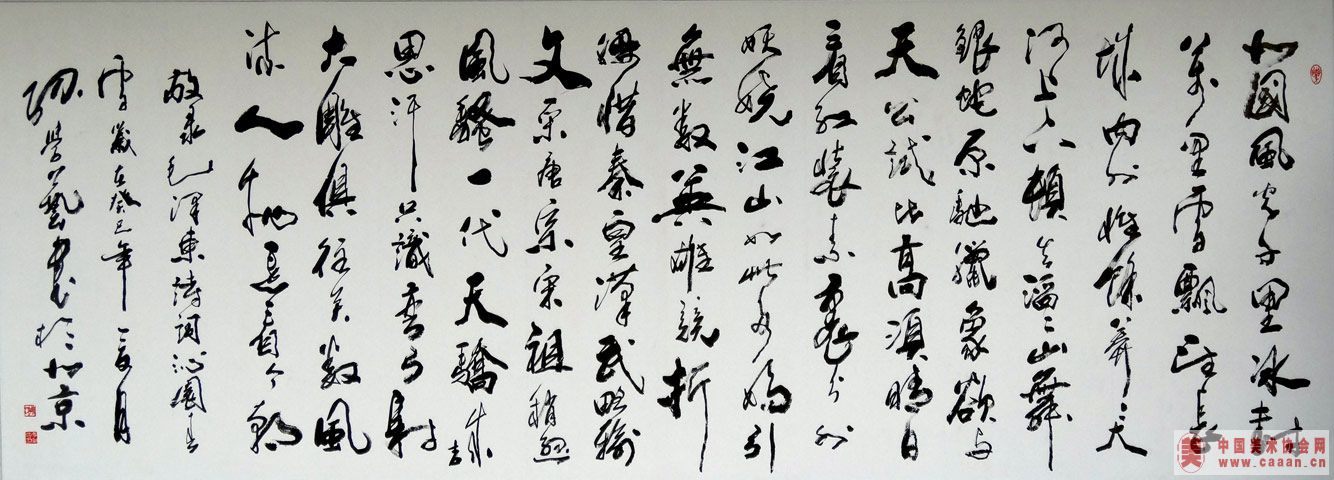 北國風光千里冰封
萬里雪飄望長
城內外惟餘莽莽大
河上下頓失滔滔山舞
銀蛇原馳蠟象欲與
天公試比高須晴日
看紅裝素裹分外
妖嬈江山如此多嬌引
無數英雄競折
腰惜秦皇漢武略輸
文采唐宗宋祖稍遜
風騷一代天驕成吉
思汗只識彎弓射
大雕俱往矣數風
流人物還看今朝
敬录毛澤東詩詞沁園春
雪歲在癸巳年夏月
學藝書於北京
美
中国美术协会网
www.caaan.cn